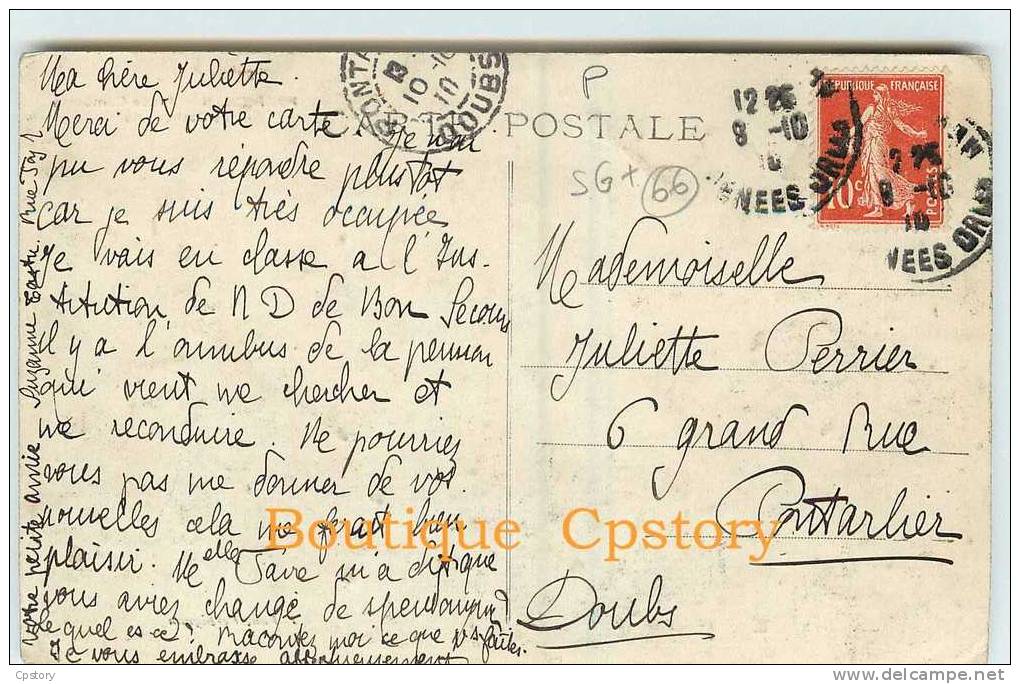 Ma chère Juliette.
Merci de votre carte je n'ai
pu vous répondre plustôt
car je suis très occupée
Je vais en classe a l'Ins-
titution de N D de Bon Secours
il y a l'omnibus de la pension
qui vient me chercher et
me reconduire. Ne pourriez
vous pas me donner de vos
nouvelles cela me ferait bien
plaisir. Melle Jave m'a dit que
vous aviez changé de
le quel es ce? racontez moi ce que vs faites.
Je vous embrasse affectueusement
Votre petite amie Suzanne Rue
CARTE POSTALE
PONTA
DOUBS
10 -10
10
P
SG+ 66
12 25
8 -10
10
NEES ORles
REPUBLIQUE FRANÇAISE
10 c
POSTES
2 25
8 -10
10
NEES OR
Mademoiselle
Juliette Perrier
6 grand Rue
Pontarlier
Doubs
Boutique Cpstory
Cpstory
www.delcampe.net